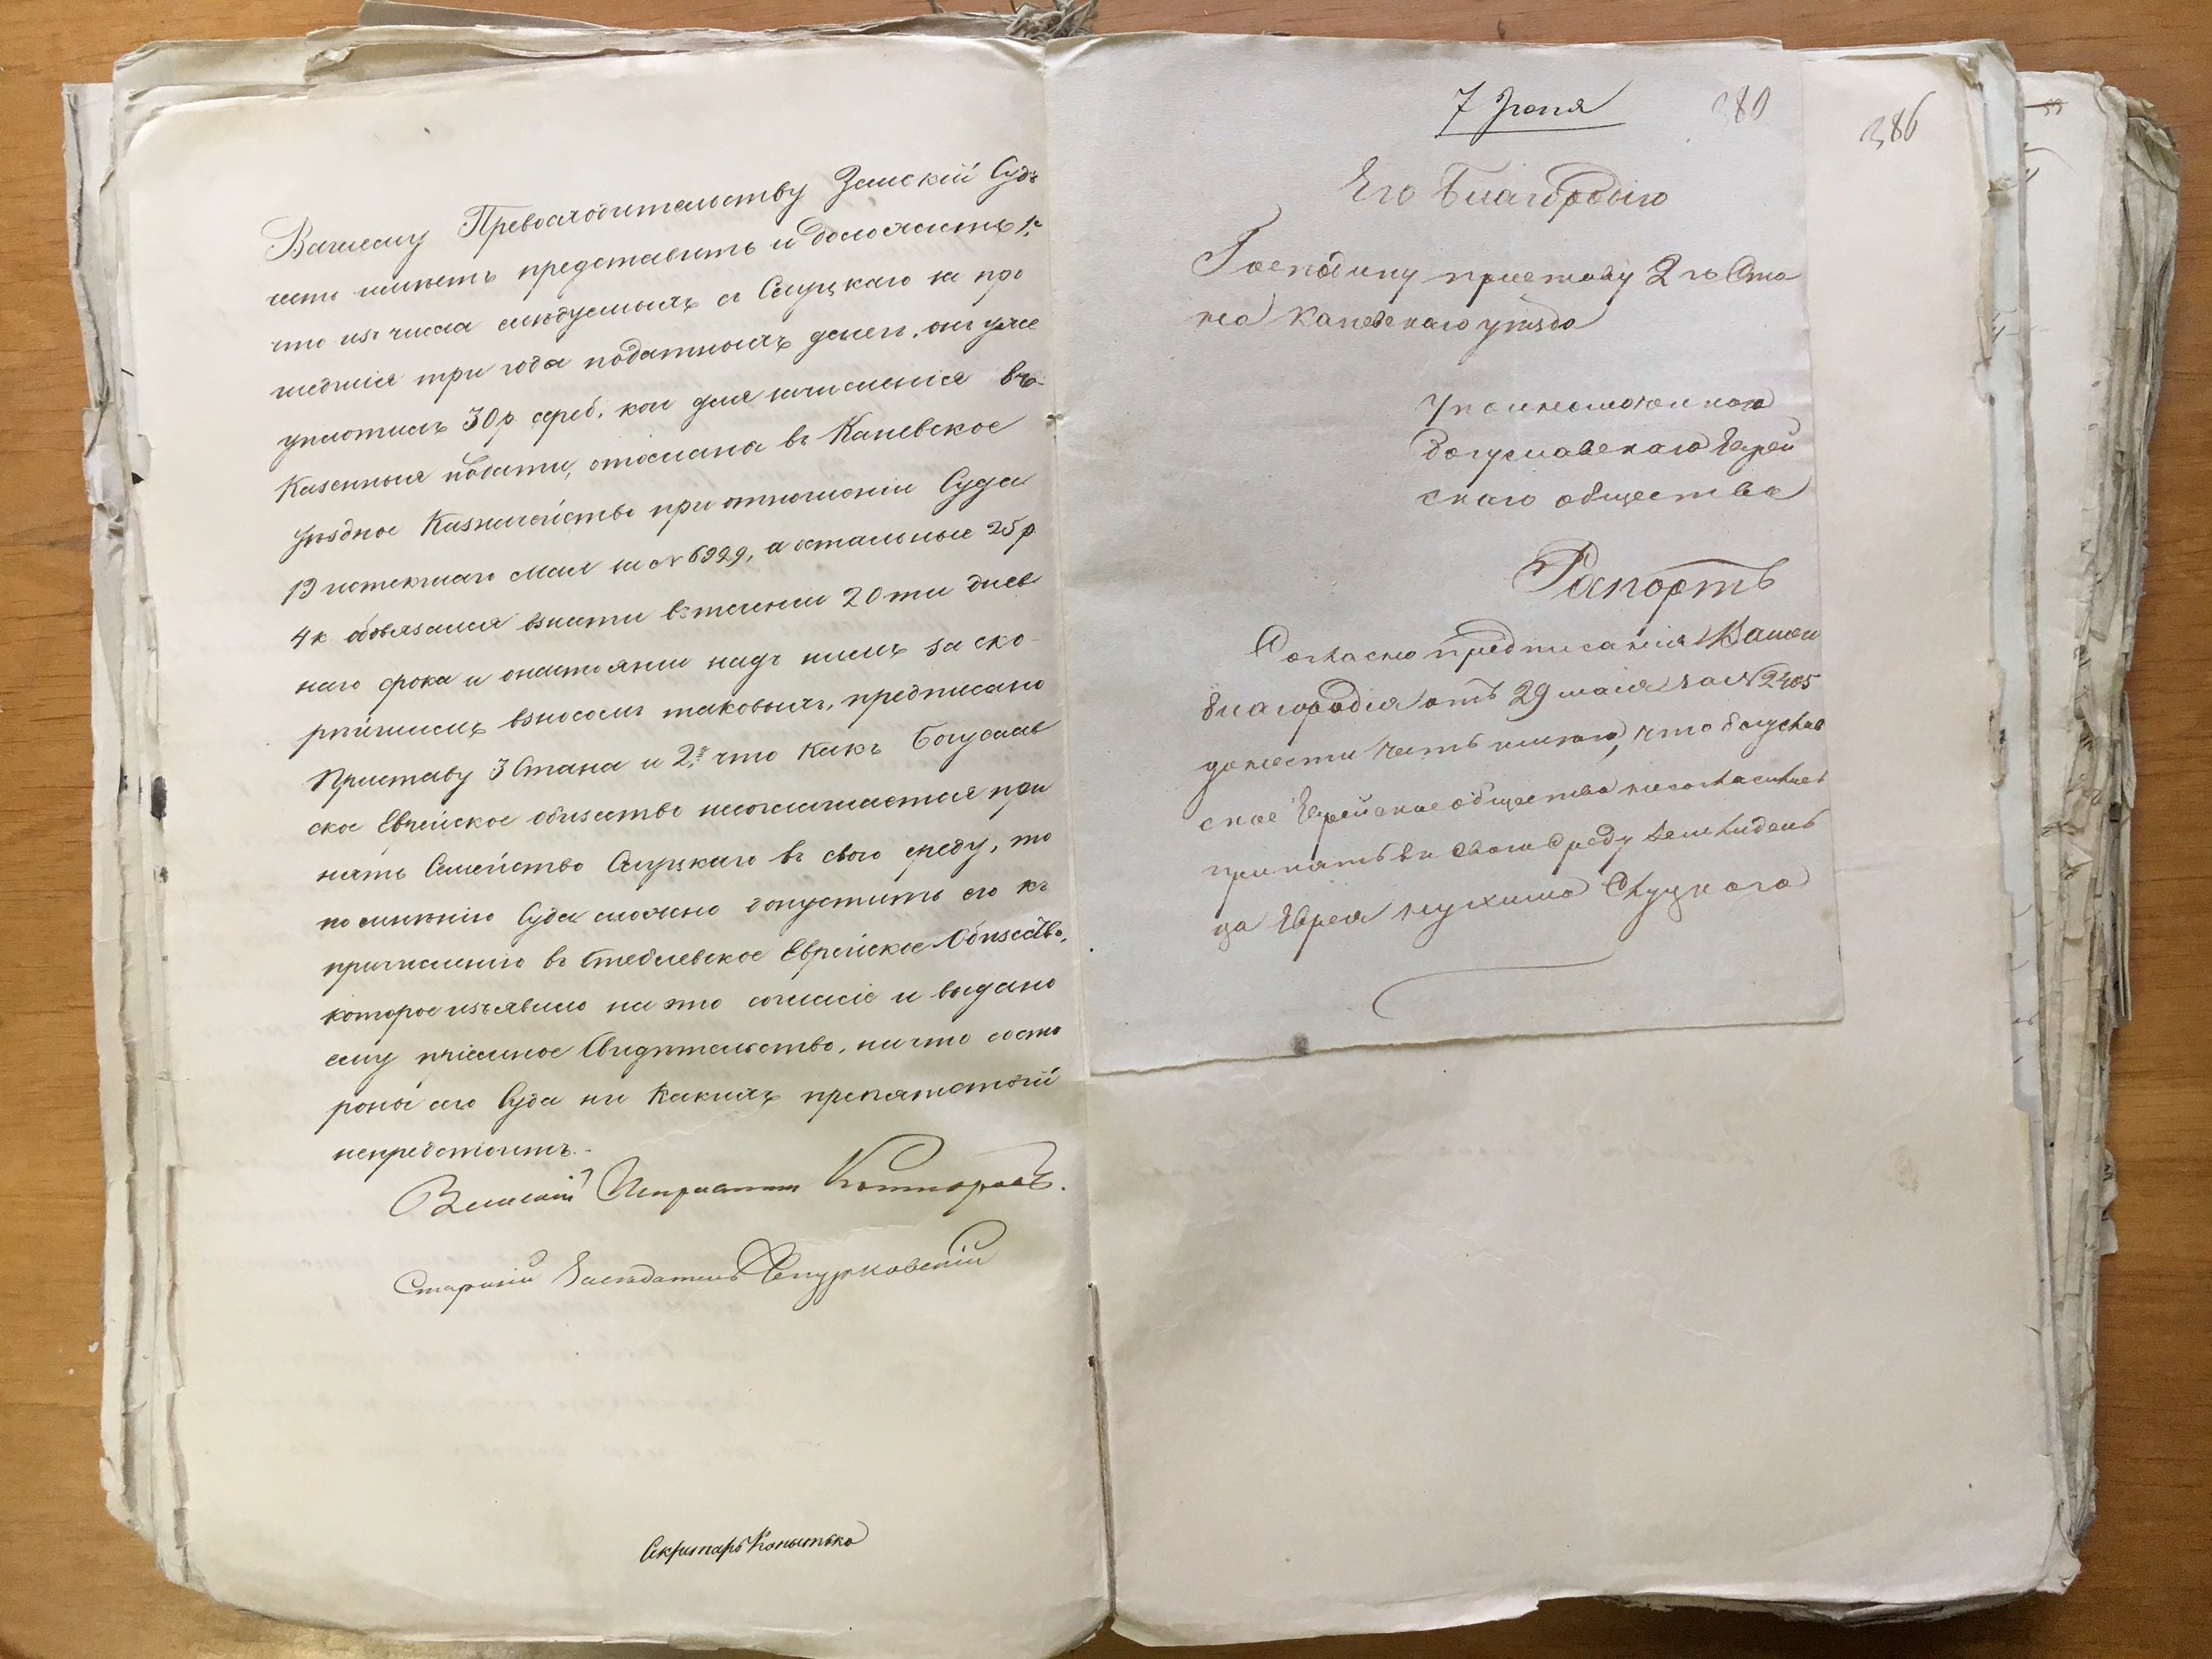 Вашему Превосходительству Земскій Судъ
честь имеетъ представить и доложить 1е
что изъ числа следуемыхъ съ Слуцкаго за про
шедшіе три года податныхъ денегъ, онъ уже
уплотилъ 30 р. сереб. кои для зачисленія въ
Казенныя подати, отосланы въ Каневское
Уѣздное Казначейство при отношеніи Суда
19 истекшаго Мая за № 6929, а остальные 25 р
4 к обовязался взнести втеченіи 20 ти днев
наго срока и онастояніи надъ нимъ за ско
рѣйшимъ взносомъ таковыхъ, предписано
Приставу 3 Стана и 2е что какъ Богуслав
ское Еврейское общество несоглашается при
нять Семейство Слуцкаго въ свою среду, то
по мнѣнію Суда можно допустить его къ
причисленію въ Стеблевское Еврейское Общество,
которое изъявило на это согласіе и выдано
ему пріемное Свидѣтельство, на что состо
роны сего Суда ни какихъ препятствій
непредстоитъ.
Земскій Исправникъ
Старшій Засѣдатель
Секретарь Копытько
7 Іюня
380
386
Его Благородію
Господину приставу 2 го Ста
на Каневскаго уѣзда
Уполномоченного
Богуславскаго Еврей
скаго общества
Рапортъ
Согласно предписанія Вашего
благородія отъ 29 маія за № 2405
донести честь имѣю, что богуслав
ское Еврейское общество несогласилось
принять въ свою среду
ца Еврея нухима Слуцкого